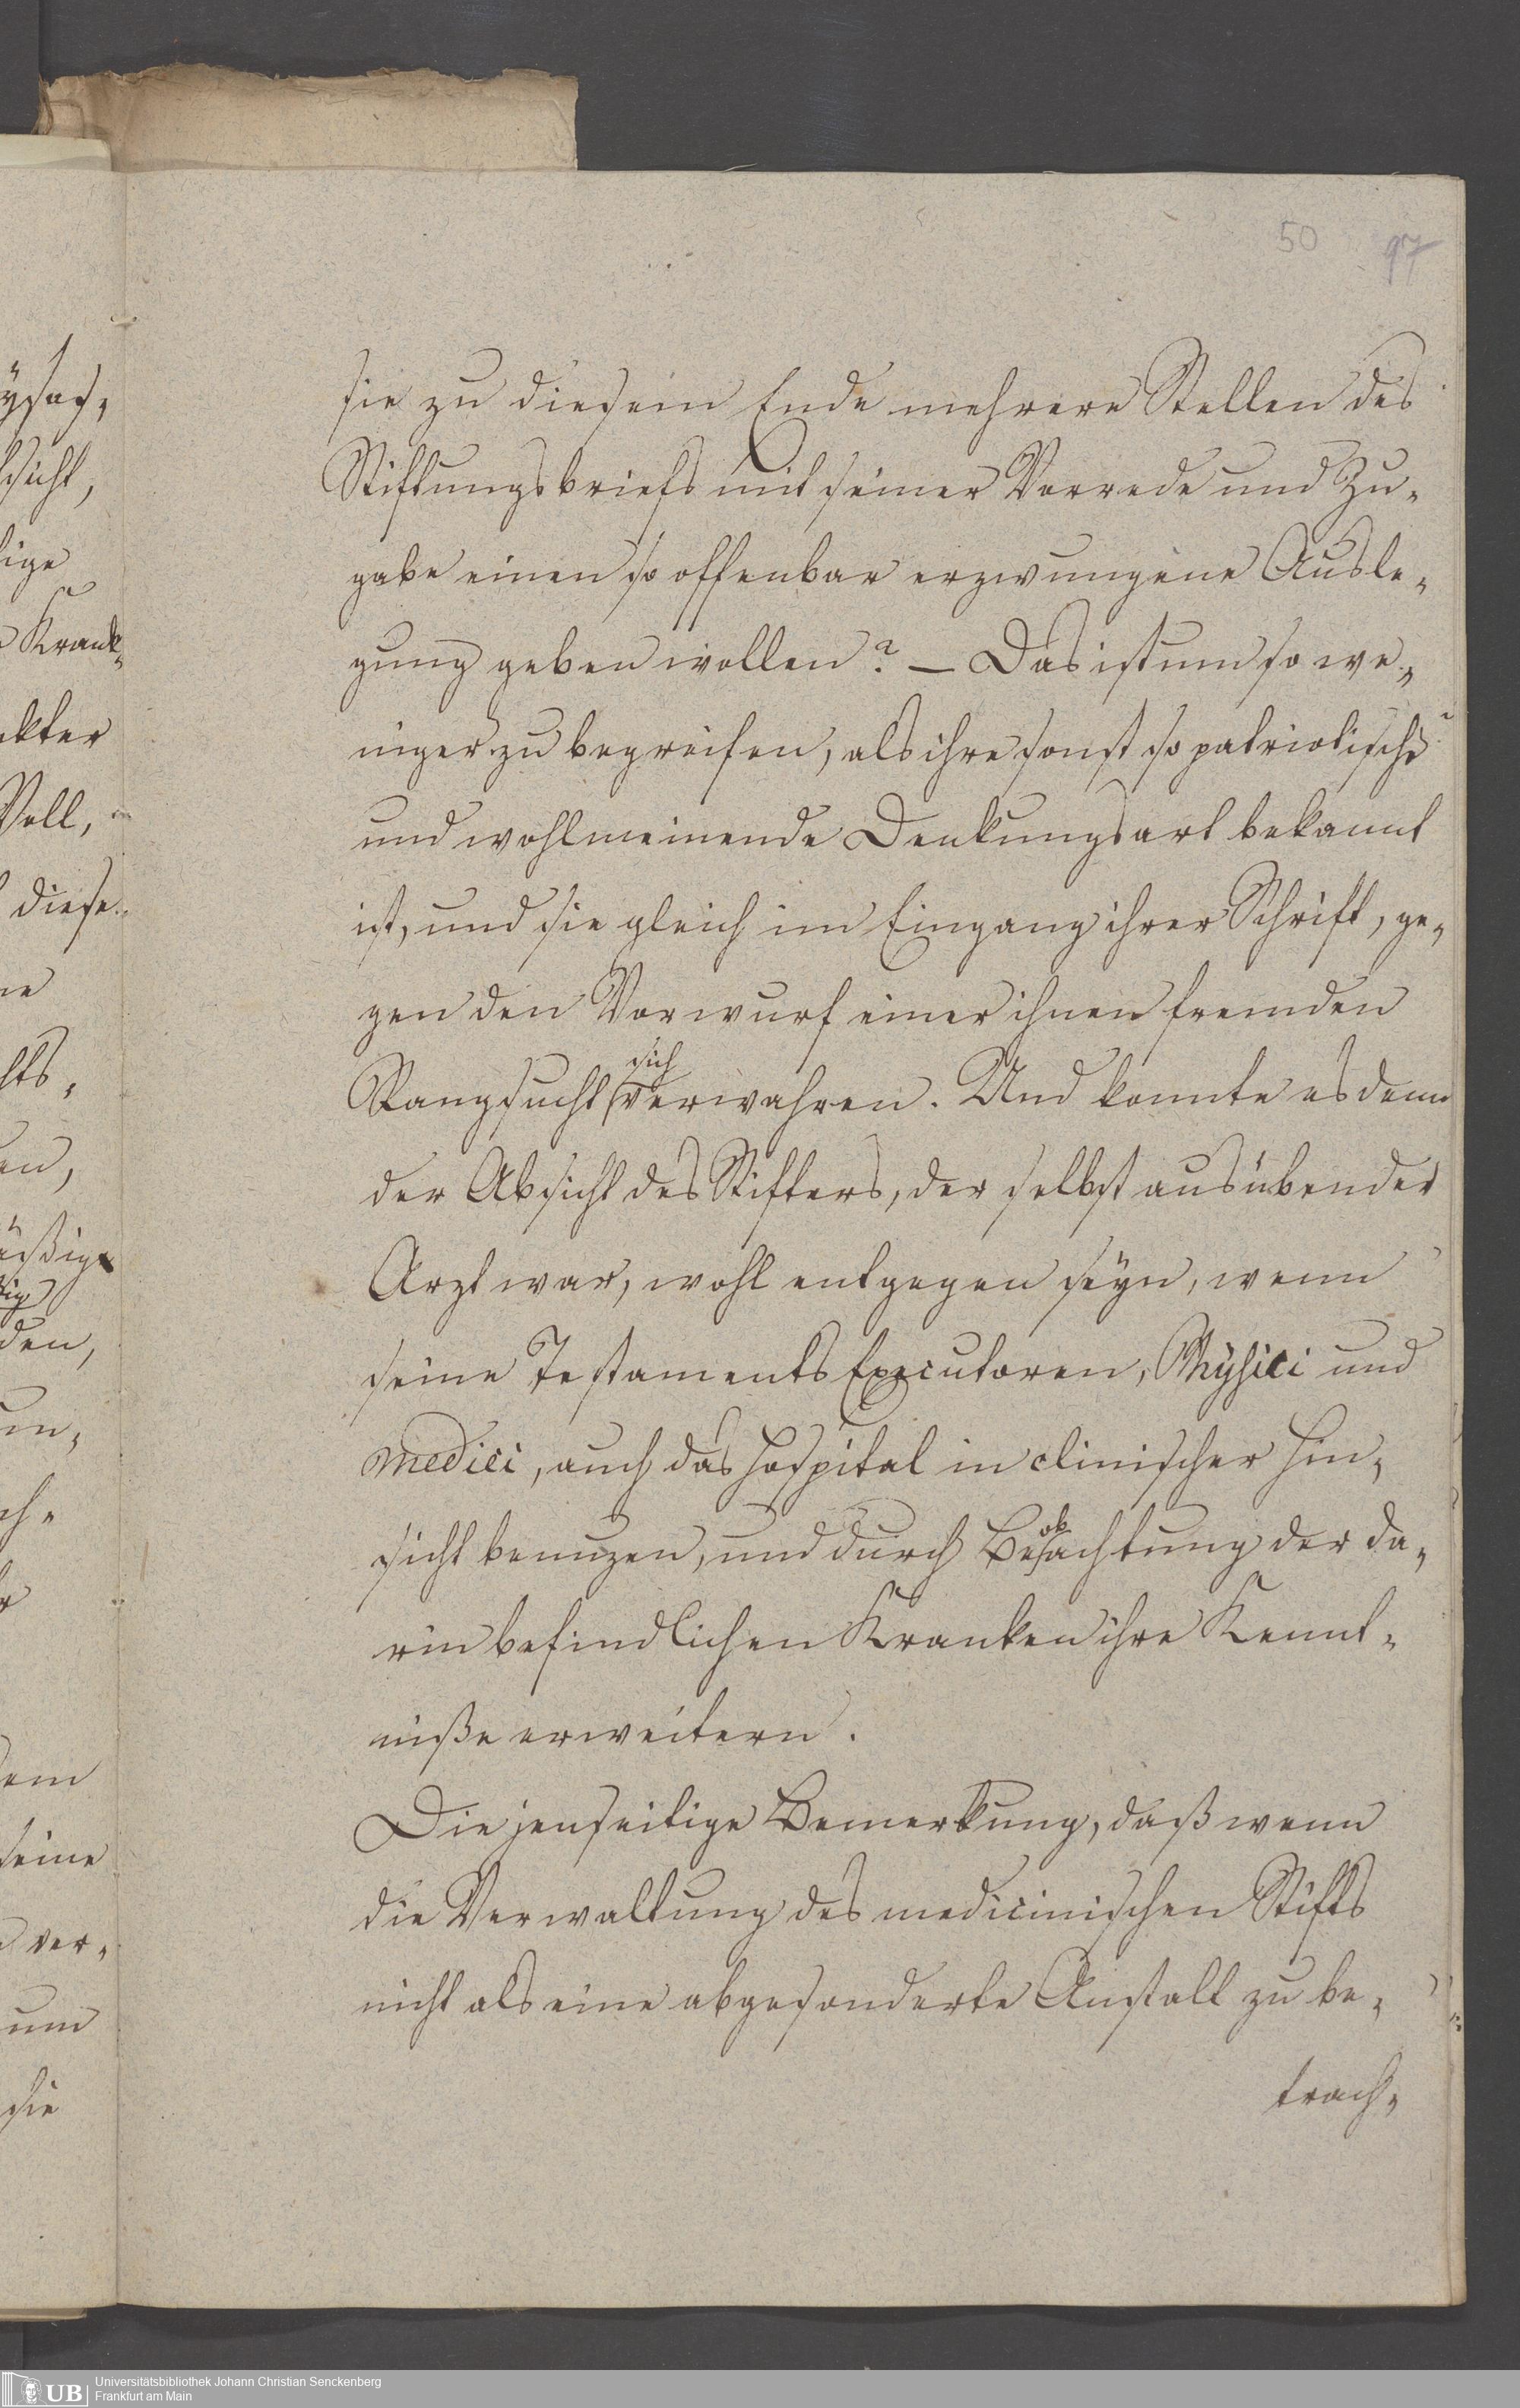 50 97
sie zu diesem Ende mehrere Stellen des
Stiftungsbriefs mit seiner Vorrede und Zu-
gabe einen so offenbar erzwungene Ausle-
gung geben wollen? — Das ist um so we-
niger zu begreifen, als ihre sonst so patriotische
und wohlmeinende Denkungsart bekannt
ist, und sie gleich im Eingang ihrer Schrift, ge-
gen den Vorwurf einer ihnen fremden
Rangsucht sich verwahren. Und konnte es denn
der Absicht des Stifters, der selbst ausübender
Arzt war, wohl entgegen seyn, wenn
seine Testaments Executoren, Physici und
medici, auch das Hospital in clinischer Hin-
sicht benuzen, und durch Beobachtung der da-
rin befindlichen Kranken ihre Kennt-
niße erweitern.
Die jenseitige Bemerkung, daß wenn
die Verwaltung des medicinischen Stifts
nicht als eine abgesonderte Anstalt zu be-
trach-
Universitätsbibliothek Johann Christian Senckenberg
Frankfurt am Main
UB